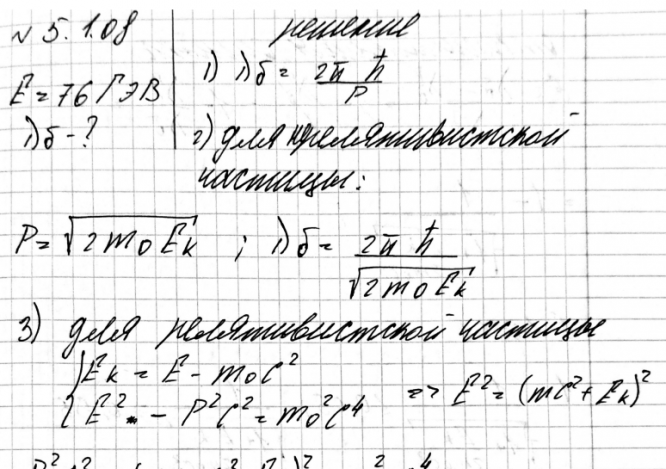 № 5.1.08
решение
E = 76 ГЭВ
λб - ?
1) λб = 2π ħ / P
2) для нерелятивистской
частицы:
P = √(2 m0 Eк) ; λб = 2π ħ / √(2 m0 Eк)
3) для релятивистской частицы
{ Eк = E - m0c²
{ E² - P²c² = m0²c⁴ => E² = (mc² + Eк)²